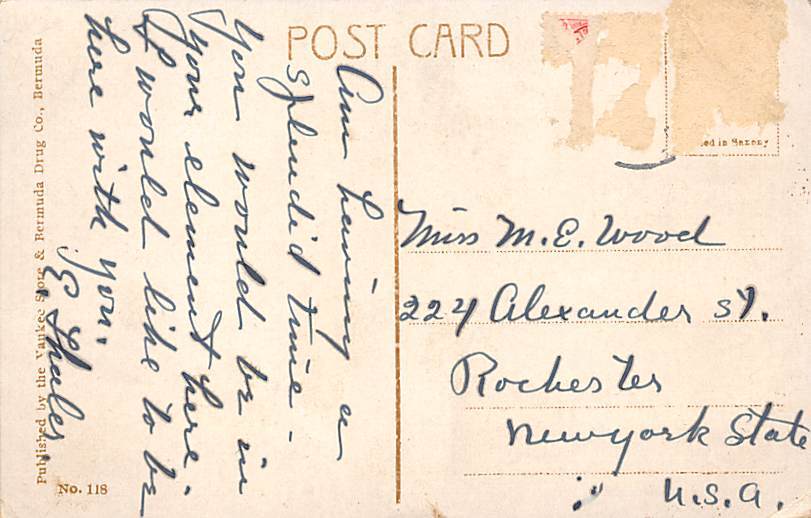 POST CARD
Am having a
splendid time -
you would be in
your element here.
& would like to be
here with you.
Miss M. E. Wood
224 Alexander St.
Rochester
Newyork State
U.S.A.
ed in Saxony
Published by the Yankee Store & Bermuda Drug Co., Bermuda
No. 118